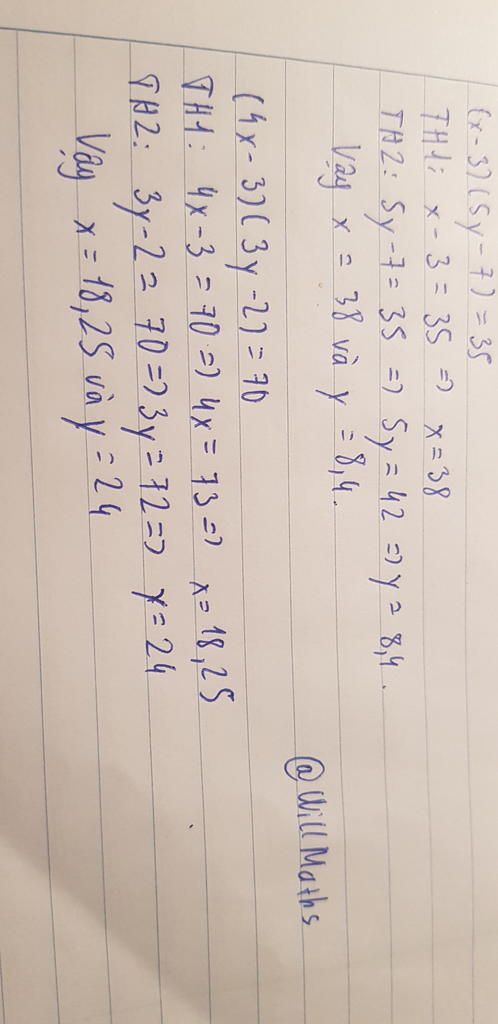 (x-3)(5y-7)=35
TH1: x-3=35 => x=38
TH2: 5y-7=35 => 5y=42 => y=8,4.
Vậy x=38 và y=8,4.
(4x-3)(3y-2)=70
TH1: 4x-3=70 => 4x=73 => x=18,25
TH2: 3y-2=70 => 3y=72 => y=24
Vậy x=18,25 và y=24
@WillMaths